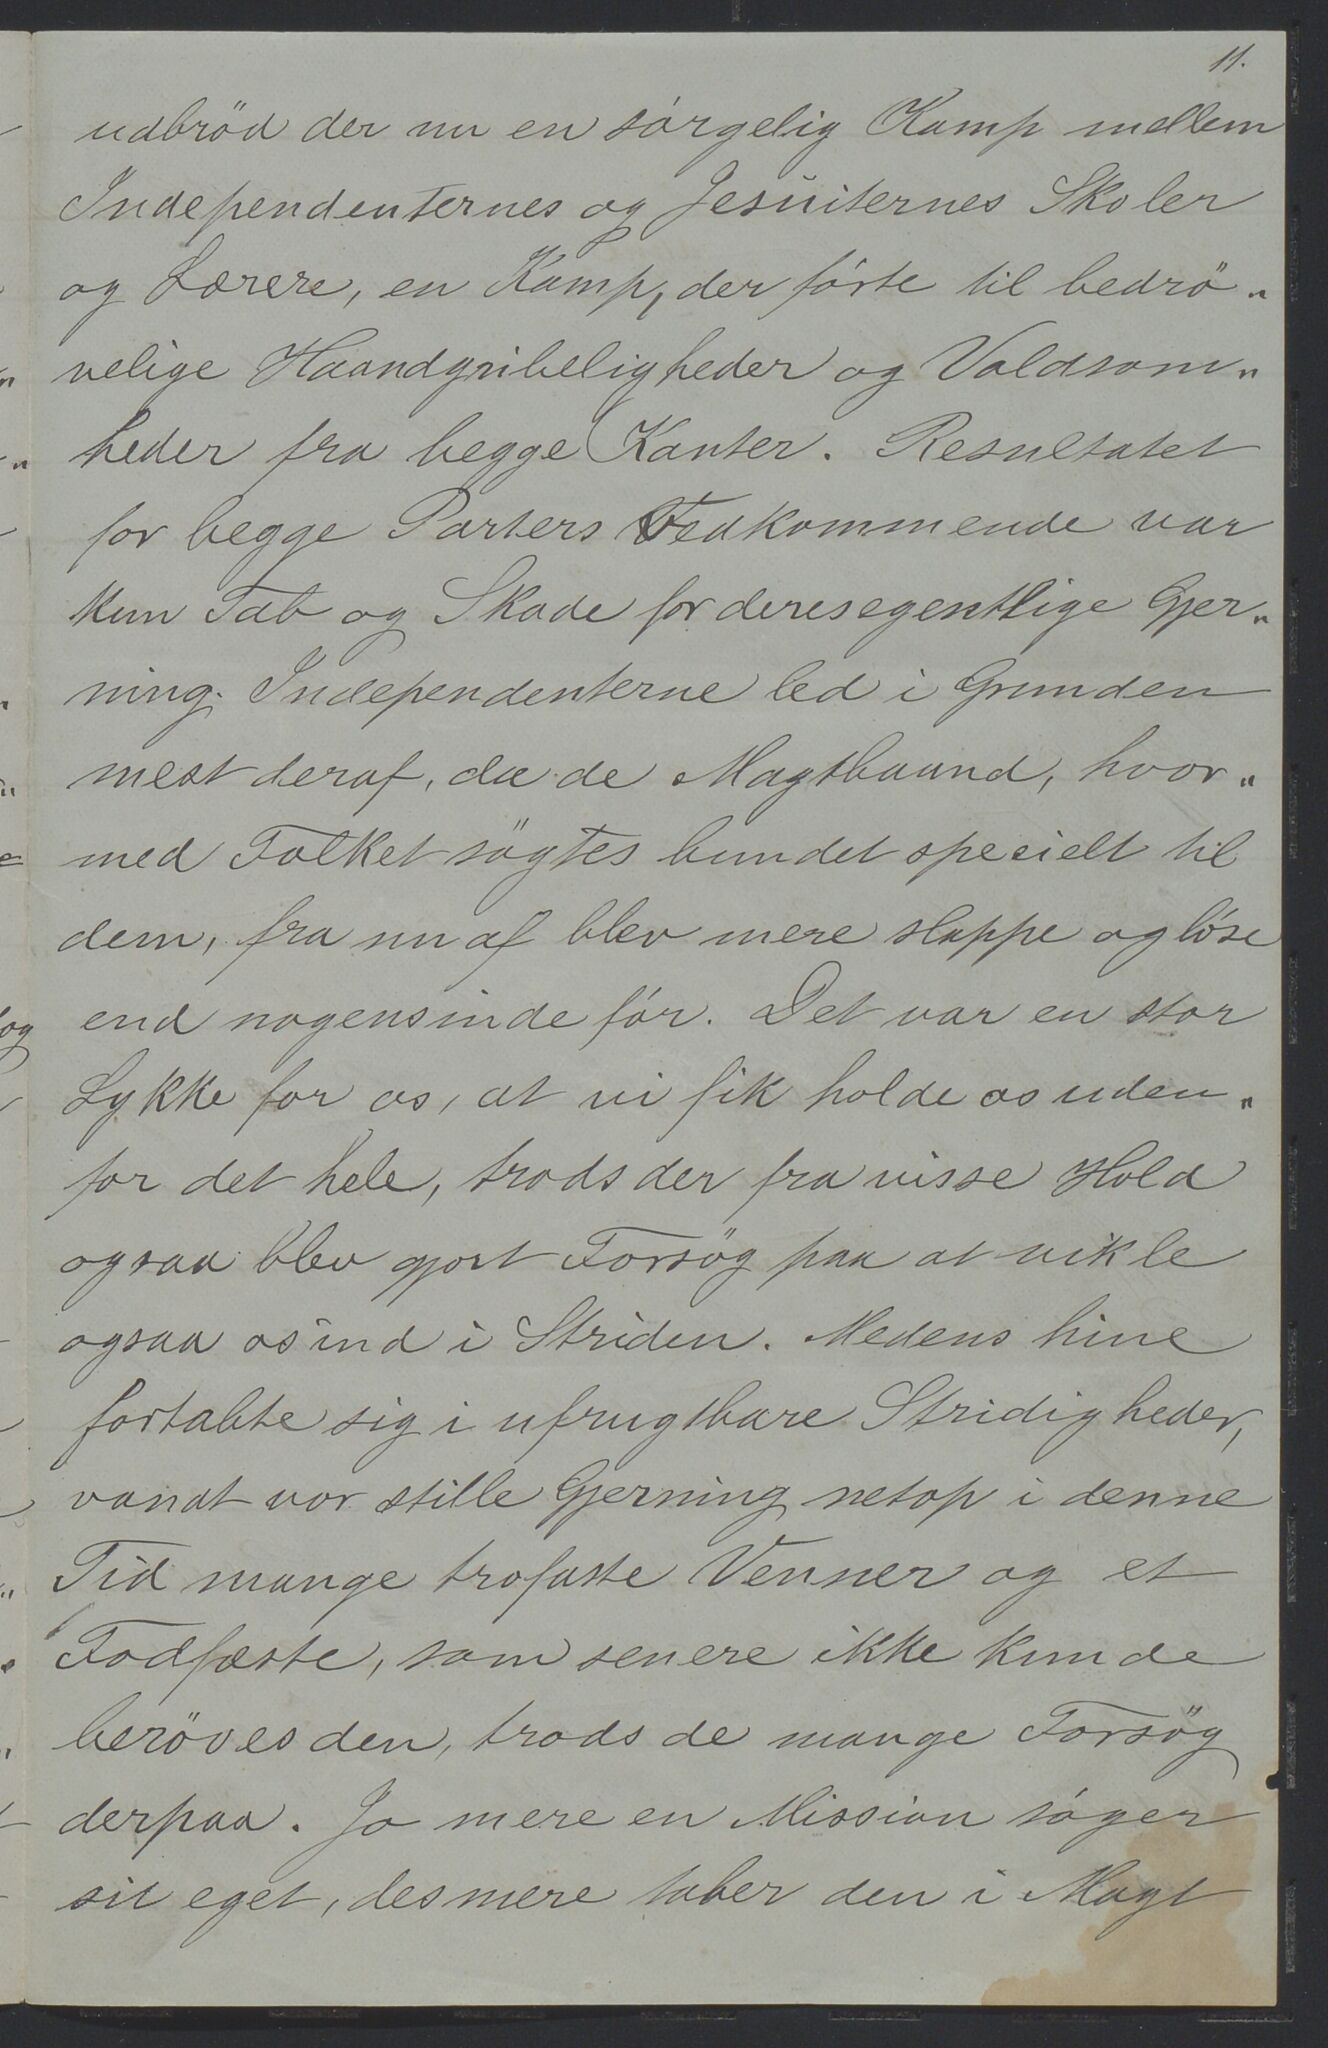 11.
udbröd der nu en sórgelig Kamp mellem
Independenternes og Jesuiternes Skoler
og Lærere, en Kamp, der fórte til bedrö„
velige Haandgribeligheder og Voldsom„
heder fra begge Kanter. Resultatet
for begge Parters Vedkommende var
kun Tab og Skade for deres egentlige Gjer„
ning. Independenterne led i Grunden
mest deraf, da de Magtbaand, hvor„
med Folket sögtes bundet specielt til
dem, fra nu af blev mere slappe og löse
end nogensinde fór. Det var en stor
Lykke for os, at vi fik holde os uden„
for det hele, trods der fra visse Hold
ogsaa blev gjort Forsög paa at vikle
ogsaa os ind i Striden. Medens hine
fortabte sig i ufrugtbare Stridigheder,
vandt vor stille Gjerning netop i denne
Tid mange trofaste Venner og et
Fodfæste, som senere ikke kunde
beröves den, trods de mange Forsög
derpaa. Jo mere en Mission sóger
sit eget, des mere taber den i Magt